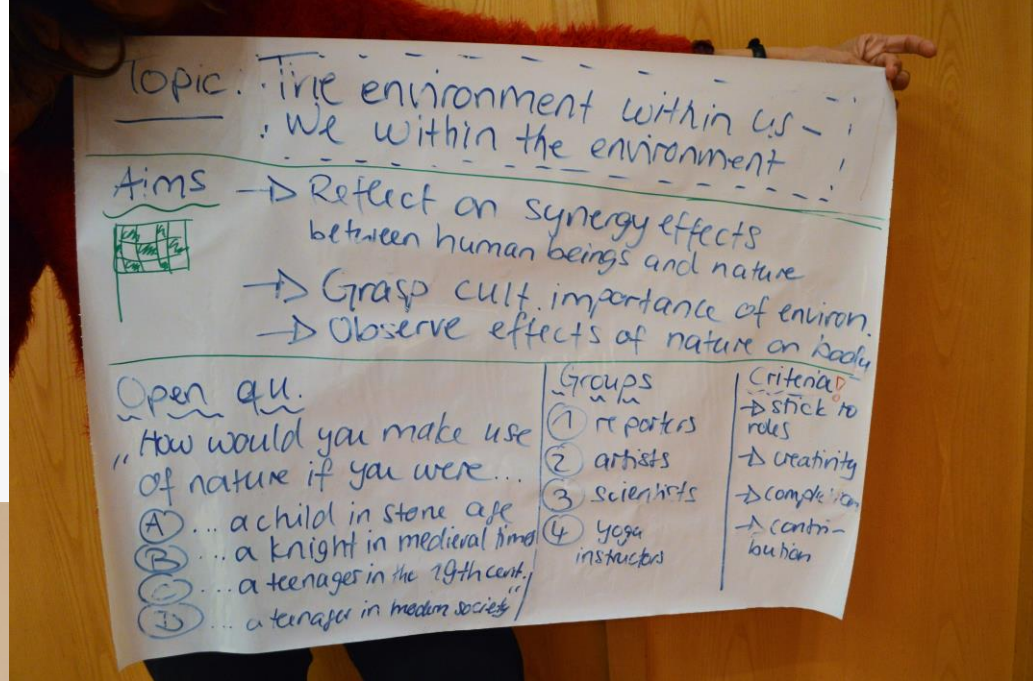 Topic: The environment within us -
We within the environment
Aims → Reflect on synergy effects
between human beings and nature
→ Grasp cult. importance of environ.
→ Observe effects of nature on body
Open qu.
„How would you make use
of nature if you were...
A ... a child in stone age
B ... a knight in medieval times
C ... a teenages in the 19th cent.
D ... a teenager in modern society"
Groups
1 reporters
2 artists
3 scientists
4 yoga
instructors
Criteria!
→ stick to
roles
→ creativity
→ completion
→ contri-
bution